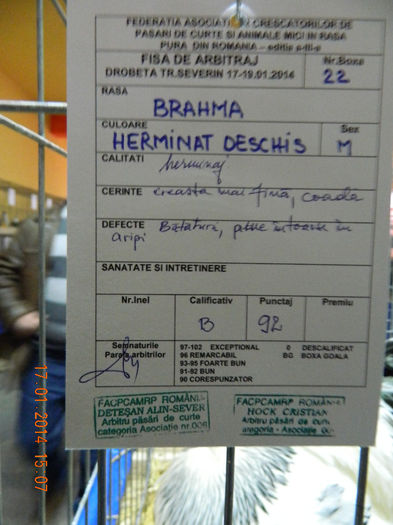 FEDERATIA ASOCIATIILOR CRESCATORILOR DE
PASARI DE CURTE SI ANIMALE MICI IN RASA
PURA DIN ROMANIA - editia a-III-a
FISA DE ARBITRAJ
Nr.Boxa
DROBETA TR.SEVERIN 17-19.01.2014
22
RASA
BRAHMA
CULOARE
Sex
HERMINAT DESCHIS
M
CALITATI
herminaj
CERINTE creasta mai fină, coada
DEFECTE Bătătură, pene întoarse în
aripi
SANATATE SI INTRETINERE
Nr.Inel Calificativ Punctaj Premiu
B 92
Semnaturile
arbitrilor
97-102 EXCEPTIONAL 0 DESCALIFICAT
96 REMARCABIL BG BOXA GOALA
93-95 FOARTE BUN
91-92 BUN
90 CORESPUNZATOR
FACPCAMRP ROMÂNIA
DETEȘAN ALIN-SEVER
Arbitru păsări de curte
categoria Asociație nr.006
FACPCAMRP ROMÂNIA
HOCK CRISTIAN
Arbitru păsări de curte
categoria - Asociație
17.01.2014 15:07